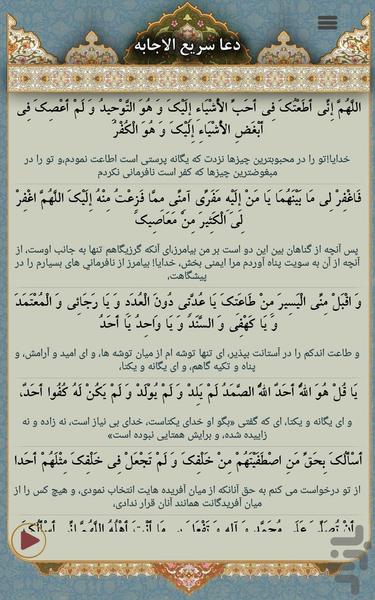 دعا سریع الاجابه
اللَّهُمَّ إِنِّى أَطَعْتُکَ فِى أَحَبِّ الْأَشْیَاءِ إِلَیْکَ وَ هُوَ التَّوْحِیدُ وَ لَمْ أَعْصِکَ فِى
أَبْغَضِ الْأَشْیَاءِ إِلَیْکَ وَ هُوَ الْکُفْرُ
خدایا!تو را در محبوبترین چیزها نزدت که یگانه پرستی است اطاعت نمودم،و تو را در
مبغوضترین چیزها که کفر است نافرمانی نکردم
فَاغْفِرْ لِى مَا بَیْنَهُمَا یَا مَنْ إِلَیْهِ مَفَرِّى آمِنِّى مِمَّا فَزِعْتُ مِنْهُ إِلَیْکَ اللَّهُمَّ اغْفِرْ
لِىَ الْکَثِیرَ مِنْ مَعَاصِیکَ
پس آنچه از گناهان بین این دو است بر من بیامرز،ای آنکه گریزگاهم تنها به جانب اوست، از
آنچه از آن به سویت پناه آوردم مرا ایمنی بخش، خدایا! بیامرز از نافرمانی های بسیارم را در
پیشگاهت،
وَ اقْبَلْ مِنِّى الْیَسِیرَ مِنْ طَاعَتِکَ یَا عُدَّتِى دُونَ الْعُدَدِ وَ یَا رَجَائِى وَ الْمُعْتَمَدَ
وَ یَا کَهْفِى وَ السَّنَدَ وَ یَا وَاحِدُ یَا أَحَدُ
و طاعت اندکم را در آستانت بپذیر، ای تنها توشه ام از میان توشه ها، و ای امید و آرامش، و
پناه و تکیه گاهم، و ای یگانه و یکتا،
یَا قُلْ هُوَ اللَّهُ أَحَدٌ اللَّهُ الصَّمَدُ لَمْ یَلِدْ وَ لَمْ یُولَدْ وَ لَمْ یَکُنْ لَهُ کُفُوا أَحَدٌ،
و ای یگانه و یکتا، ای که گفتی «بگو او خدای یکتاست، خدای بی نیاز است، نه زاده و نه
زاییده شده، و برایش همتایی نبوده است»
أَسْأَلُکَ بِحَقِّ مَنِ اصْطَفَیْتَهُمْ مِنْ خَلْقِکَ وَ لَمْ تَجْعَلْ فِى خَلْقِکَ مِثْلَهُمْ أَحَدا
از تو درخواست می کنم به حق آنانکه از میان آفریده هایت انتخاب نمودی، و هیچ کس را از
میان آفریدگانت همانند آنان قرار ندادی،
أَنْ تُصَلِّىَ عَلَى مُحَمَّدٍ وَ آلِهِ وَ تَفْعَلَ بِى مَا أَنْتَ أَهْلُهُ اللَّهُمَّ إِنِّى أَسْأَلُکَ
بازار